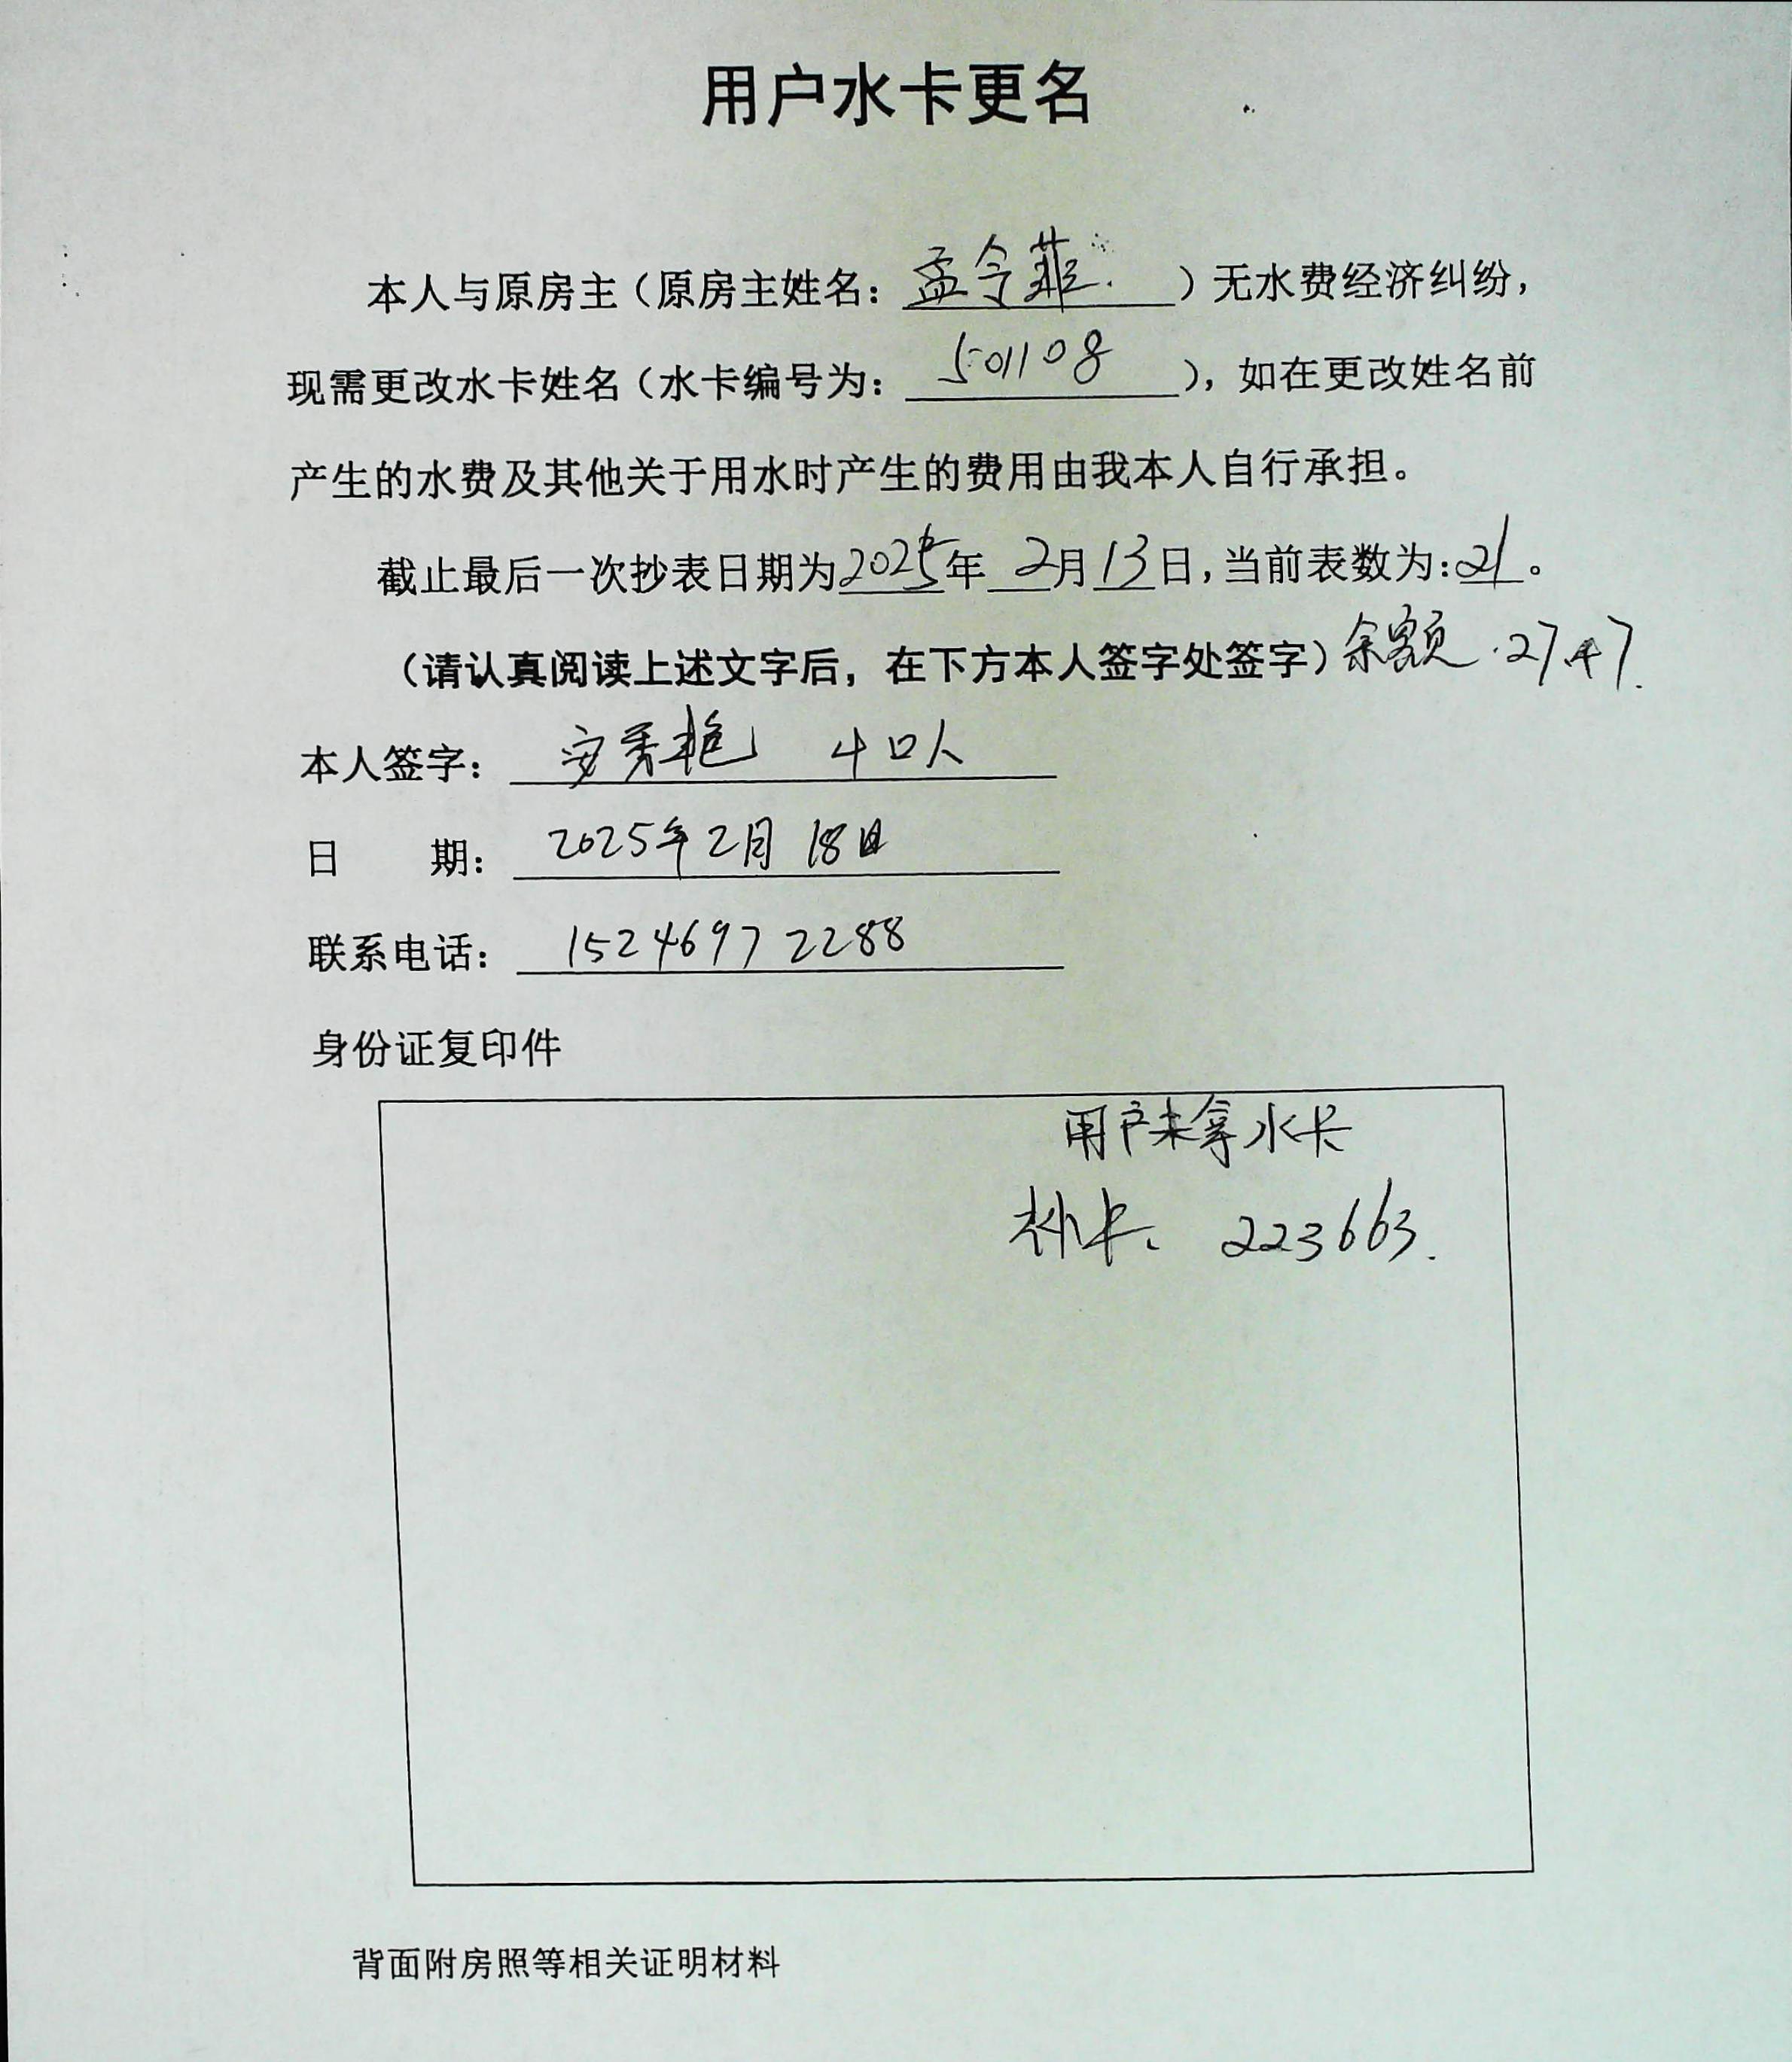 用户水卡更名
本人与原房主（原房主姓名：孟令菲）无水费经济纠纷，
现需更改水卡姓名（水卡编号为：501108），如在更改姓名前
产生的水费及其他关于用水时产生的费用由我本人自行承担。
截止最后一次抄表日期为2025年2月13日，当前表数为：21。
（请认真阅读上述文字后，在下方本人签字处签字）余额.27.47.
本人签字：安秀艳 4口人
日 期：2025年2月18日
联系电话：15246972288
身份证复印件
用户未拿水卡
补卡、223663.
背面附房照等相关证明材料